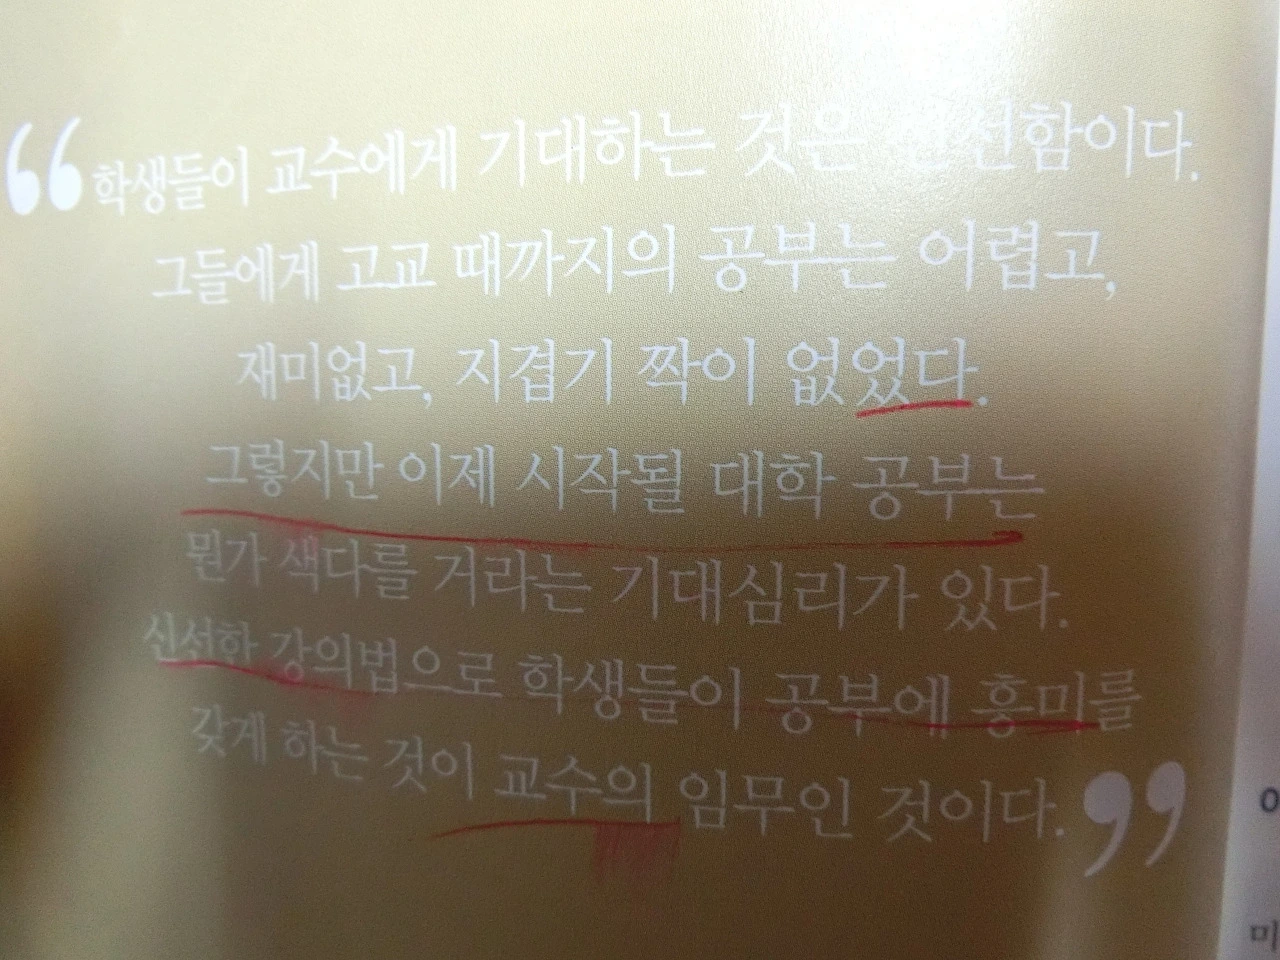 “ 학생들이 교수에게 기대하는 것은 신선함이다.
그들에게 고교 때까지의 공부는 어렵고,
재미없고, 지겹기 짝이 없었다.
그렇지만 이제 시작될 대학 공부는
뭔가 색다를 거라는 기대심리가 있다.
신선한 강의법으로 학생들이 공부에 흥미를
갖게 하는 것이 교수의 임무인 것이다. ”